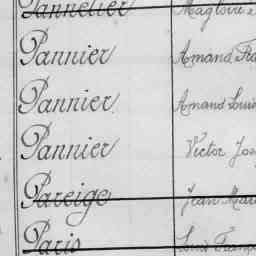 Pannetier Magloire
Pannier Amand
Pannier Amand Louis
Pannier Victor
Pareige Jean
Paris Louis